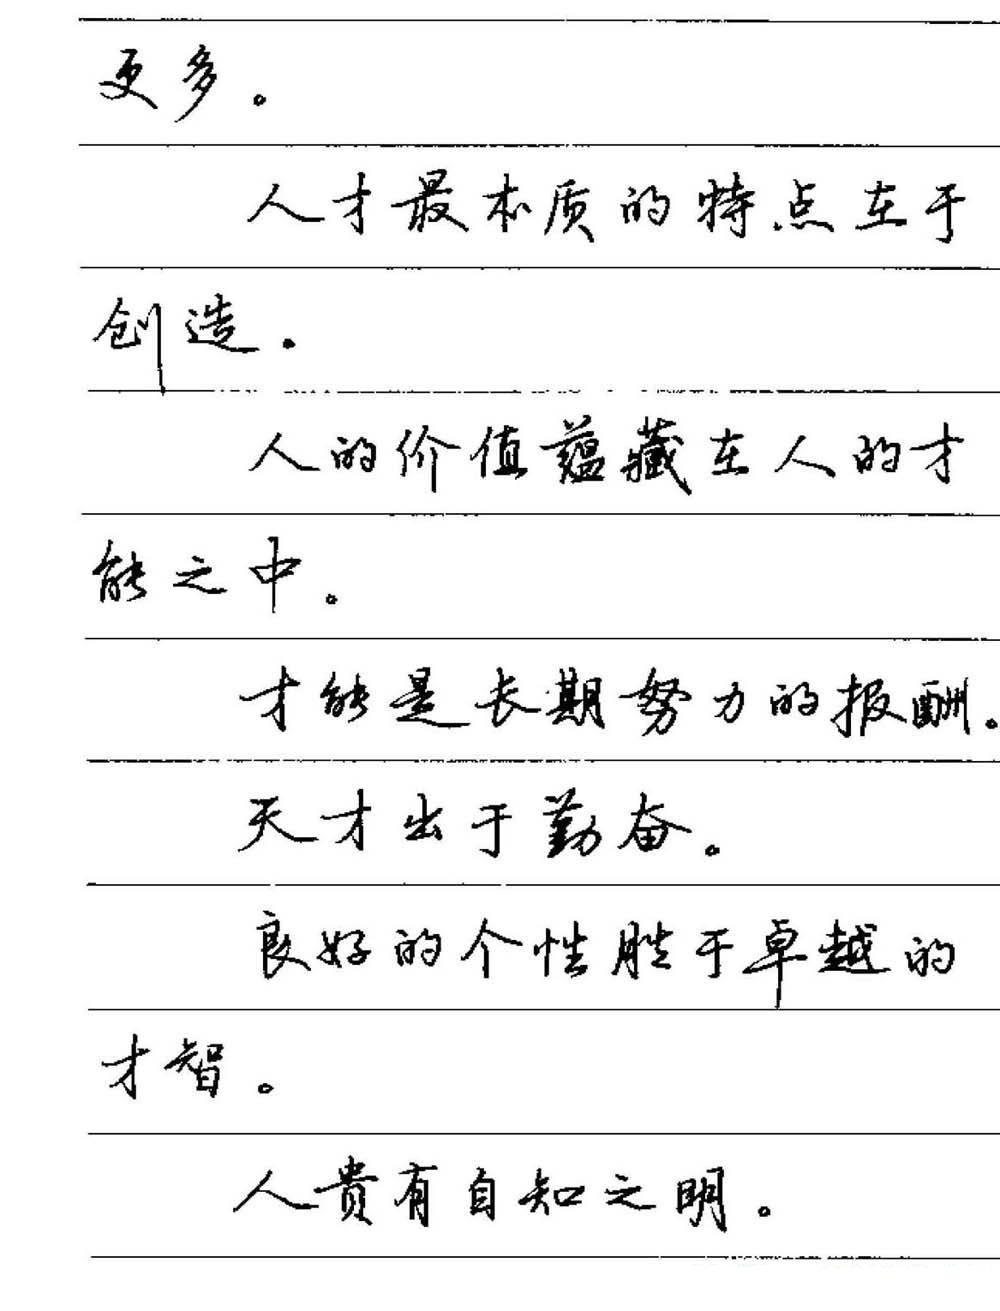 更多。
人才最本质的特点在于
创造.
人的价值蕴藏在人的才
能之中。
才能是长期努力的报酬。
天才出于勤奋。
良好的个性胜于卓越的
才智。
人贵有自知之明。